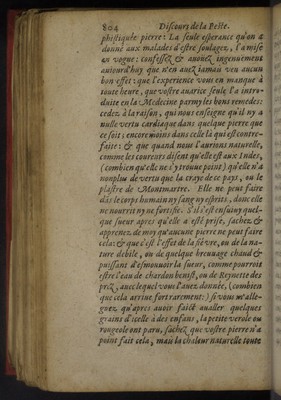 804 Discours de la Peste.
phistiquée pierre: La seule esperance qu'on a
donné aux malades d'estre soulagez, l'a mise
en vogue: confessez & auouëz ingenuement
auiourd'huy que n'en auez iamais veu aucun
bon effet: que l'experience vous en manque à
toute heure, que vostre auarice seule l'a intro-
duite en la Medecine parmy les bons remedes:
cedez à la raison, qui nous enseigne qu'il n'y a
nulle vertu cardiaque dans quelque pierre que
ce soit: encore moins dans celle là qui est contre-
faite: & que quand nous l'aurions naturelle,
comme les coureurs disent qu'elle est aux Indes,
(combien qu'elle ne s'y trouue point) qu'elle n'a
nonplus de vertu que la craye de ce pays, ou le
plastre de Montmartre. Elle ne peut faire
dis-ie corps humain ny sang ny esprits, donc elle
ne nourrit ny ne fortifie: S'il s'est ensuiuy quel-
que sueur apres qu'elle a esté prise, sachez &
apprenez de moy qu'aucune pierre ne peut faire
cela: & que c'est l'effet de la fiévre, ou de la na-
ture debile, ou de quelque breuuage chaud &
puissant d'esmouuoir la sueur, comme pourroit
estre l'eau de chardon benist, ou de Reynette des
prez, auec lequel vous l'auez donnée, (combien
que cela arriue fort rarement:) si vous m'alle-
guez qu'apres auoir faict aualler quelques
grains d'icelle à des enfans, la petite verole ou
rougeole ont paru, sachez que vostre pierre n'a
point fait cela, mais la chaleur naturelle toute